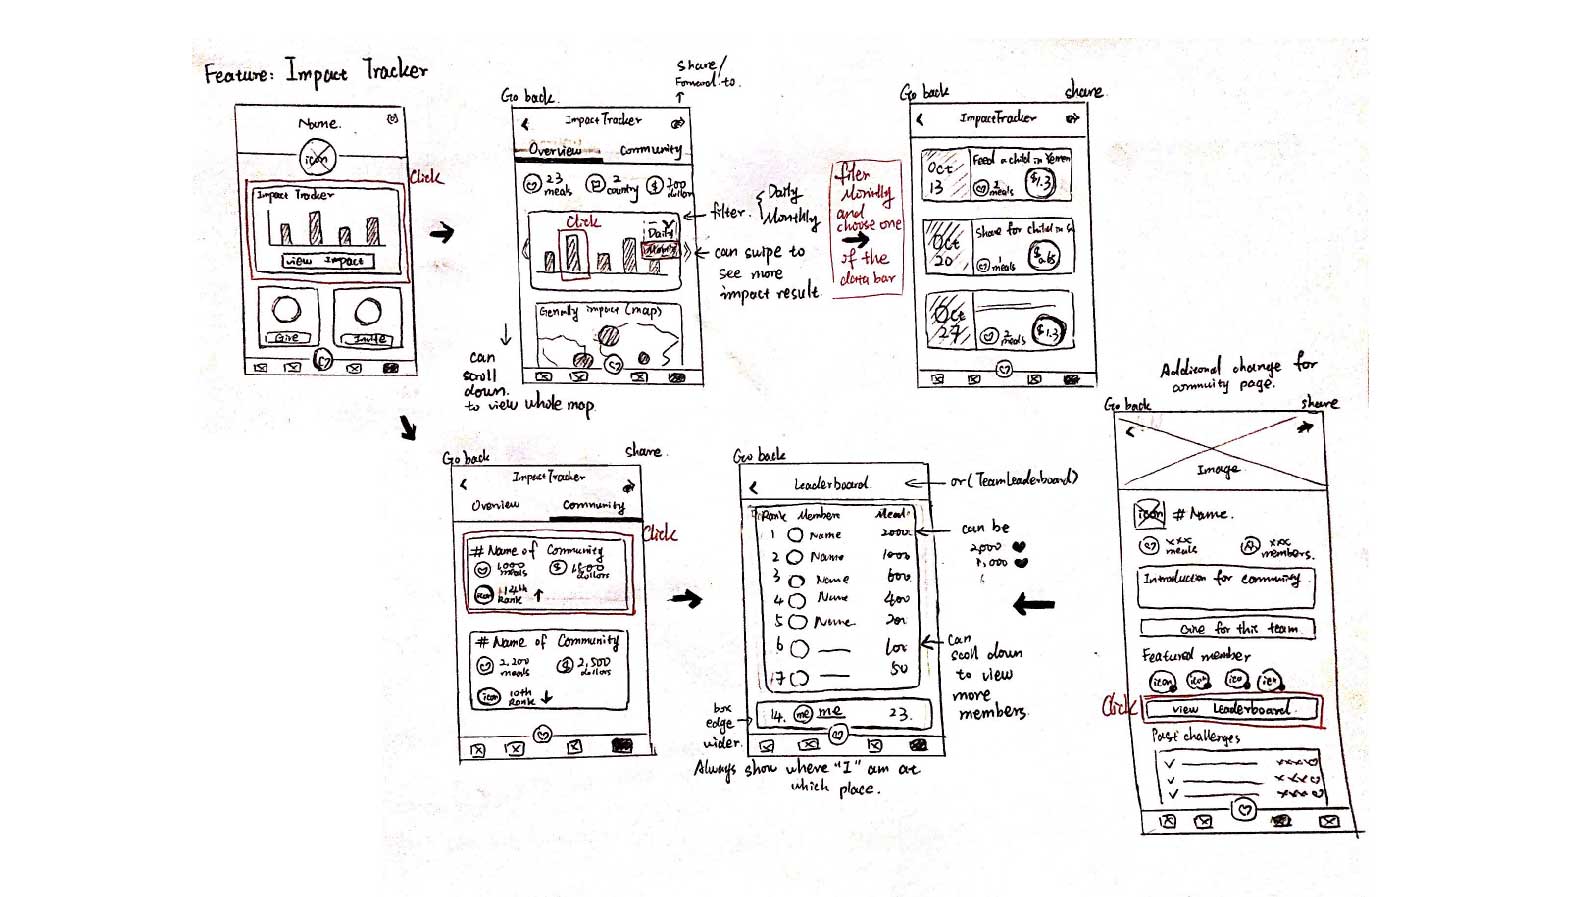 Feature: Impact Tracker
Name.
icon
Click
Impact Tracker
view Impact
Give
Invite
Go back.
share/
Forward to.
Impact Tracker
Overview
Community
23
meals
2
country
$
700
dollar
Click
Daily
filter.
Daily
Monthly
can swipe to
see more
impact result
impact (map)
can
scroll
down.
to view whole map.
filer
Monthly
and
choose one
of the
data bar
Go back
share.
Impact Tracker
Oct
13
Feed a child in Yemen
2
meals
$1.3
Oct
20
Share for child in
1
meals
Oct
27
2
meals
$1.3
Go back
share.
Impact Tracker
Overview
Community
Click
# Name of Community
1,000
meals
$
dollars
icon
14th
Rank
# Name of Community
2,200
meals
$
2,500
dollars
icon
10th
Rank
Go back
Leaderboard
or (Team Leaderboard)
Rank Members Meals
1 Name 2000
2 Name 1000
3 Name 600
4 Name 400
5 Name 200
6 100
7 50
14. me me 23.
can be
2,000
1,000
can
scoll down
to view
more
members.
box
edge
wider.
Always show where "I" am at
which place.
Additional change for
community page.
Go back
share
Image
icon # Name.
xxx
meals
xxx
members.
Introduction for community
Give for this team
Featured member
icon
icon
icon
icon
Click
view Leaderboard
Past challenges
xxx
xxx
xxx